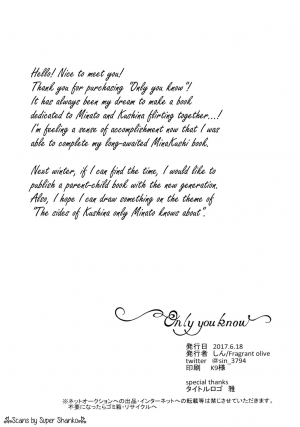 Hello! Nice to meet you!
Thank you for purchasing "Only you know"!
It has always been my dream to make a book
dedicated to Minato and Kushina flirting together...!
I'm feeling a sense of accomplishment now that I was
able to complete my long-awaited MinaKushi book.
Next winter, if I can find the time, I would like to
publish a parent-child book with the new generation.
Also, I hope I can draw something on the theme of
"The sides of Kushina only Minato knows about".
Only you know
発行日 2017.6.18
発行者 しん/Fragrant olive
twitter @sin_3794
印刷 K9様
special thanks
タイトルロゴ 雅
※ネットオークションへの出品・インターネットへの転載等は禁じさせていただきます。
不要になったらゴミ箱・リサイクルへ
Scans by Super Shanko